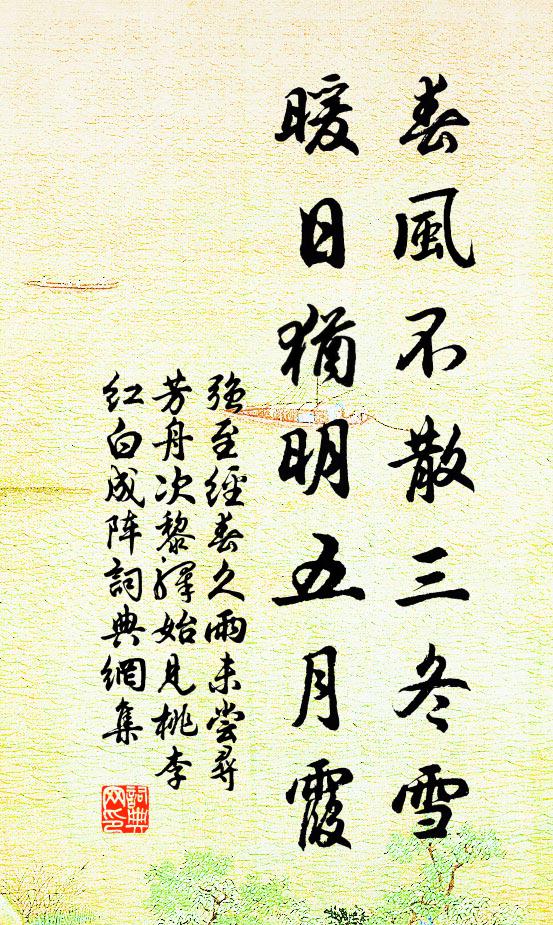 春風不散三冬雪
暖日猶明五月霞
强至經春久雨未嘗尋
芳舟次黎驛始見桃李
红白成阵詞典網集
詞典
网印